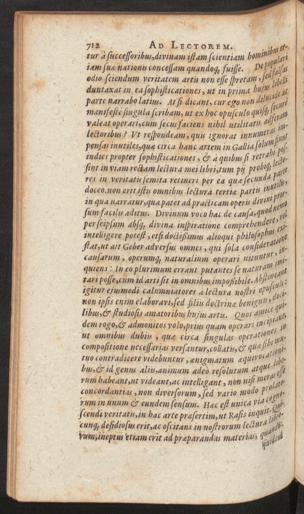 712 AD LECTOREM.
tur à successoribus, divinam istam scientiam hominibus
iam suæ nationis concessam quandoq; fuisse. De populari
odio sciendum veritatem artis non esse spretam, sed falsas
duntaxat in ea sophisticationes, ut in prima hujus libelli
parte narrabo latius. At si dicant, cur ego non
manifestè singula scribam, ut ex hoc opusculo quisq;
valeat operari, cum secus faciens nihil utilitatis afferam
lectoribus? Ut respondeam, quis ignorat innumeras
pensas inutiles, quæ circa hanc artem in Gallia solum fiunt,
indies propter sophisticationes, & à quibus si retrahi
sint in viam rectam lectura mei libri, tum pij probiq;
res in veritatis semita retineri per ea quæ secunda parte
doceo, non erit istis omnibus lectura tertiæ partis inutilis,
in qua narratur, quæ patet ad practicam operis divini
sum facilis aditus. Divinum voco hac de causa, quod nemo
per seipsum absq; divina inspiratione comprehendere, vel
intelligere potest, etsi doctissimus alioqui philosophus
stat, ut ait Geber adversus omnes, qui sola consideratione
causarum, operumq; naturalium operari nituntur,
quiens: In eo plurimum errant putantes se naturam
tari posse, cum id arti sit in omnibus impossibile. Abstineant
igitur ejusmodi calumniatores à lectura nostri opusculi:
non ipsis enim elaboravi, sed filiis doctrinæ benignis,
libus, & studiosis amatoribus hujus artis. Quos amicè
dem rogo, & admonitos volo, prius quam operari incipiant,
ut omnibus dubiis, quæ circa singulas operationes in
compositione necessarias versantur, collatis, & quæ sibi
tuo contradicere videbuntur, ænigmatum æquivocationi-
bus, & id genus aliis, animum adeò resolutum atque
rum habeant, ut videant, ac intelligant, non nisi meras esse
concordantias, non diversorum, sed vario modo
rum in unum & eundem sensum. Hæc est unica via
scendi veritatis, in hac arte præsertim, ut Rasis inquit.
cunq; desidiosus erit, ac oscitans in nostrorum lectura
rum, ineptus etiam erit ad præparandas materias,
quidead